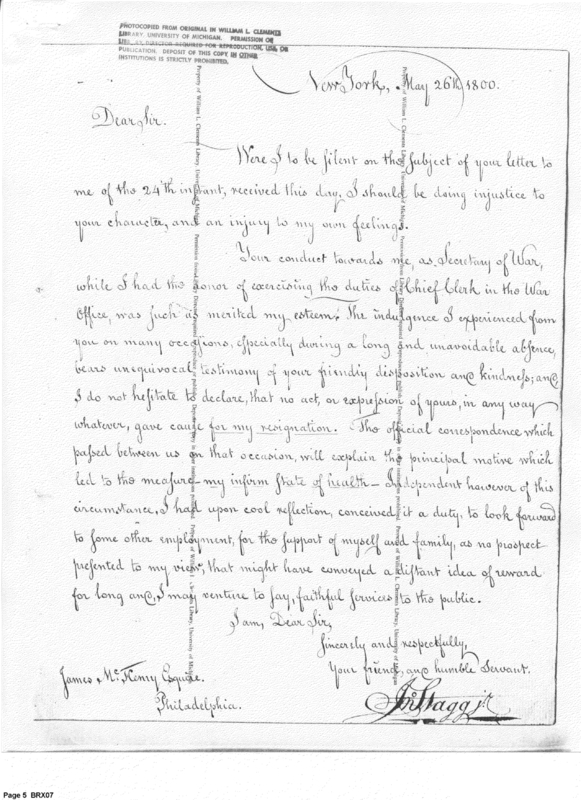 PHOTOCOPIED FROM ORIGINAL IN WILLIAM L. CLEMENTS
LIBRARY, UNIVERSITY OF MICHIGAN. PERMISSION OF
DIRECTOR REQUIRED FOR REPRODUCTION, USE OR
PUBLICATION. DEPOSIT OF THIS COPY IN OTHER
INSTITUTIONS IS STRICTLY PROHIBITED.
New York, May 26th, 1800.
Dear Sir.
Were I to be silent on the subject of your letter to
me of the 24th instant, received this day, I should be doing injustice to
your character, and an injury to my own feelings.
Your conduct towards me, as Secretary of War,
while I had the honor of exercising the duties of Chief Clerk in the War
Office, was such as merited my esteem; The indulgence I experienced from
you on many occasions, especially during a long and unavoidable absence,
bears unequivocal testimony of your friendly disposition and kindness; and,
I do not hesitate to declare, that no act, or expression of yours, in any way
whatever, gave cause for my resignation. The official correspondence which
passed between us on that occasion, will explain the principal motive which
led to the measure - my infirm state of health - Independent however of this
circumstance, I had upon cool reflection, conceived it a duty, to look forward
to some other employment, for the support of myself and family, as no prospect
presented to my view, that might have conveyed a distant idea of reward
for long and, I may venture to say, faithful services to the public.
I am, Dear Sir,
sincerely and respectfully,
Your friend, and humble Servant.
James McHenry Esquire.
Philadelphia.
Jno Stagg jr
Page 5 BRX07